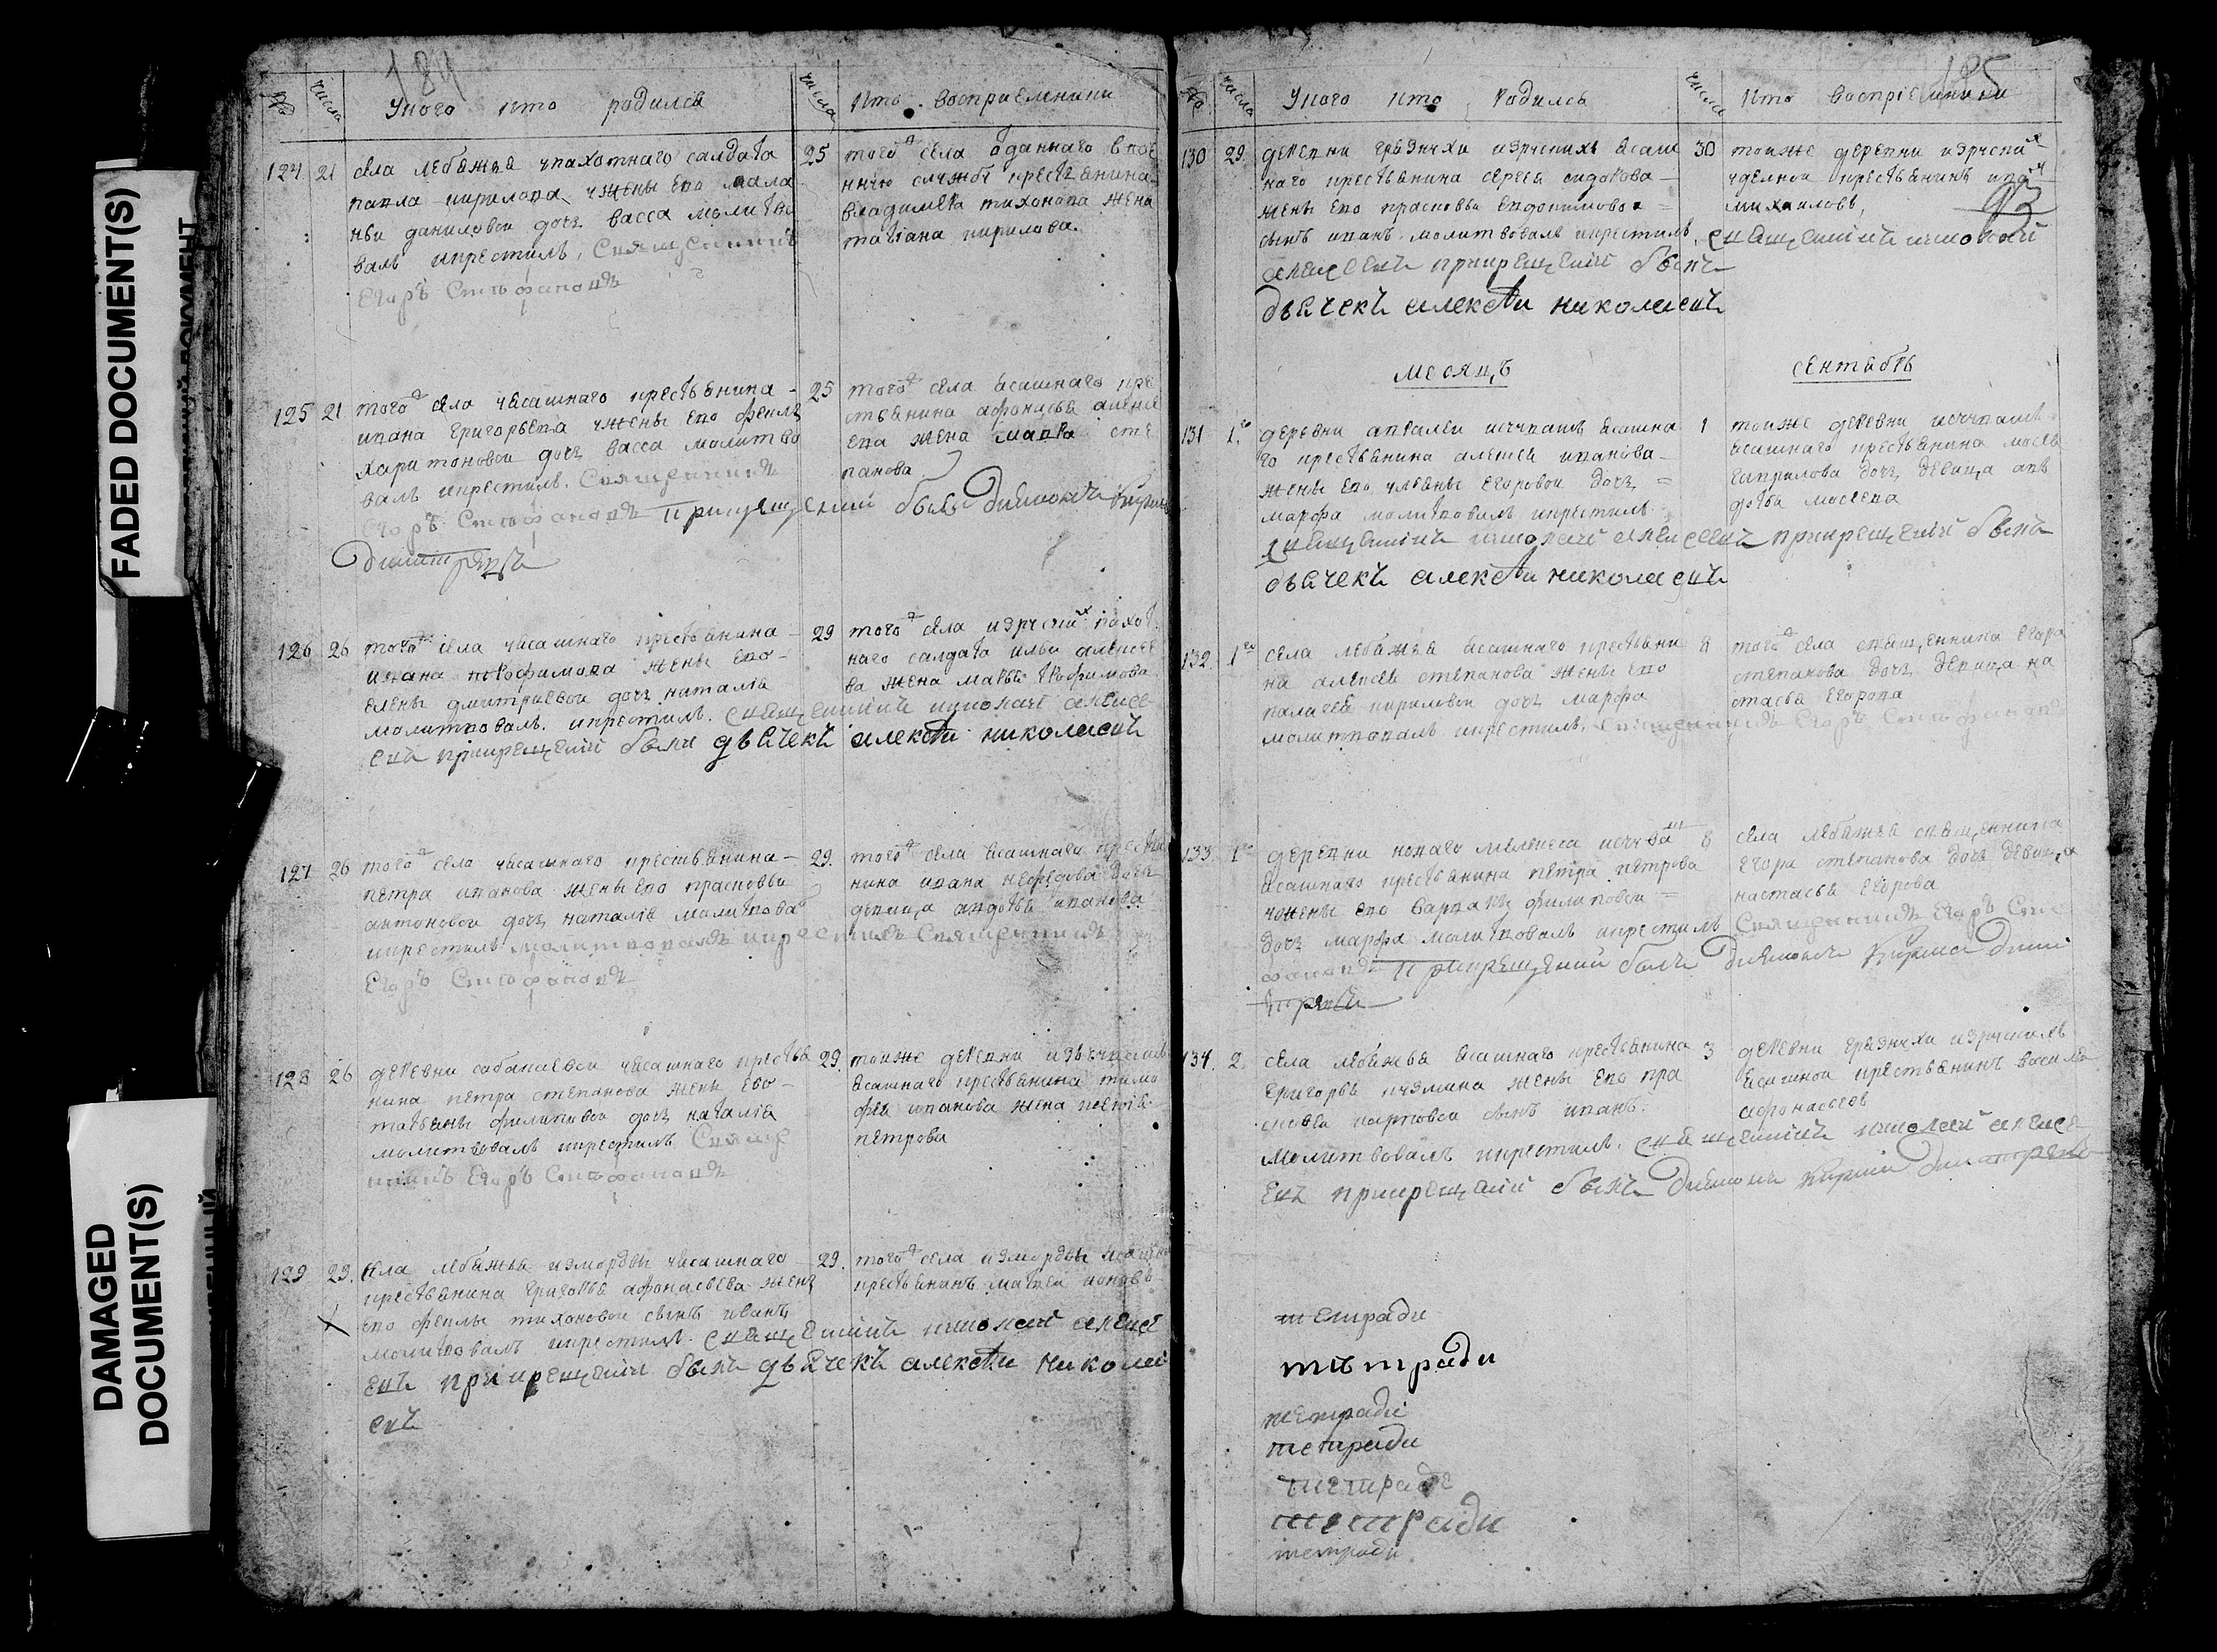 FADED DOCUMENT(S)
DAMAGED
DOCUMENT(S)
184
№ числа У кого кто родился числа кто восприемники
124 21 села лебяжья упахотнаго салдата
павла кирилова ужены его мала
ньи даниловои дочь васса молитво
валъ икрестилъ, Священникъ
Егоръ Стефановъ
25 того села оданнаго в
службу крестьянина
владимера тихонова жена
татiана кирилова.
125 21 того села уясашнаго крестьянина
ивана григорьева ужены его феклы
харитоновои дочь васса молитво
валъ икрестилъ. Священникъ
Егоръ Стефановъ Прикрещении былъ дияконъ Кирила
димитревъ
25 того села ясашнаго кре
стьянина афонасья алексе
ева жена марва сте
панова
126 26 того села уясашнаго крестьянина
ивана трофимова жены его
елены дмитриевои дочь наталiя
молитвовалъ. икрестилъ. священникъ николаи алексе
евъ прикрещении былъ дьячекъ алексеи николаевъ
29 того села пахот
наго салдата ильи алексее
ва жена марья трофимова
127 26 того села уясашнаго крестьянина
петра иванова жены его прасковьи
антоновои дочь наталiя молитвова
икрестилъ молитвовалъ икрестилъ Священникъ
Егоръ Стефановъ
29. того села ясашнаго крестья
нина ивана дочь
девица авдотья иванова
128 26 деревни сабакаевои уясашнаго крестья
нина петра степанова жены его
татьяны филиповои дочь наталiя
молитвовалъ икрестилъ Священ
никъ Егоръ Стефановъ
29. тоиже деревни
ясашнаго крестьянина тимо
феи иванова жена
петрова
129 29. села лебяжья измордвы уясашнаго
крестьянина григорья афонасьева жены
его феклы тихоновои сынъ иванъ
молитвовалъ икрестилъ. священникъ николаи алексе
евъ прикрещении былъ дьячекъ алексеи николаи
евъ
29. того села измордвы
крестьянинъ матвеи
185
№ числа У кого кто родился числа кто восприемники
130 29. деревни грязнухи ясаш
наго крестьянина сергея сидорова
жены его прасковьи евдокимовои
сынъ иванъ. молитвовалъ икрестилъ, священникъ николаи
алексеевъ прикрещении былъ
дьячекъ алексеи николаевъ
30 тоиже деревни
крестьянинъ
михаиловъ,
месяцъ сентябрь
131 1го деревни авралеи исчувашъ ясашна
го крестьянина алексея иванова
жены его ульяны егоровои дочь
марфа молитвовалъ икрестилъ
священникъ николаи алексеевъ прикрещении былъ
дьячекъ алексеи николаевъ
1 тоиже деревни исчувашъ
ясашнаго крестьянина
гаврилова дочь девица
132. 1го села лебяжья ясашнаго крестьяни
на алексея степанова жены его
палагеи кириловои дочь марфа
молитвовалъ икрестилъ, Священникъ Егоръ Стефановъ
8 того села священника егора
степанова дочь девица на
стасья егорова
133. 1го деревни новаго мелекеса исчувашъ
ясашнаго крестьянина петра петрова
ужены его варвары филиповои
дочь марфа молитвовалъ икрестилъ Священникъ Егоръ Сте
фановъ Прикрещении былъ дияконъ Кирила дими
тревъ
8 села лебяжья священника
егора степанова дочь девица
настасья егорова
134. 2 села лебяжья ясашнаго крестьянина
григорья кузмина жены его пра
сковьи карповои сынъ иванъ.
молитвовалъ икрестилъ. священникъ николаи алексе
евъ прикрещении былъ дияконъ Кирила димитревъ
3 деревни грязнухи
ясашнои крестьянинъ василеи
афонасьевъ
тетради
тетради
тетради
тетради
тетради
тетради
тетради